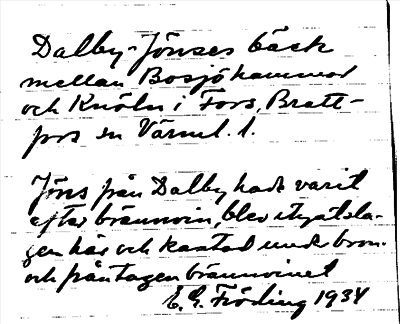 Dalby-Jönses bäck
mellan Bosjöhammar
och Knöln i Fors, Bratt-
fors sn Värml. l.
Jöns från Dalby hade varit
efter brännvin, blev ihjälsla-
gen här och kastad under bron
och fråntagen brännvinet
E. G. Fröding 1934